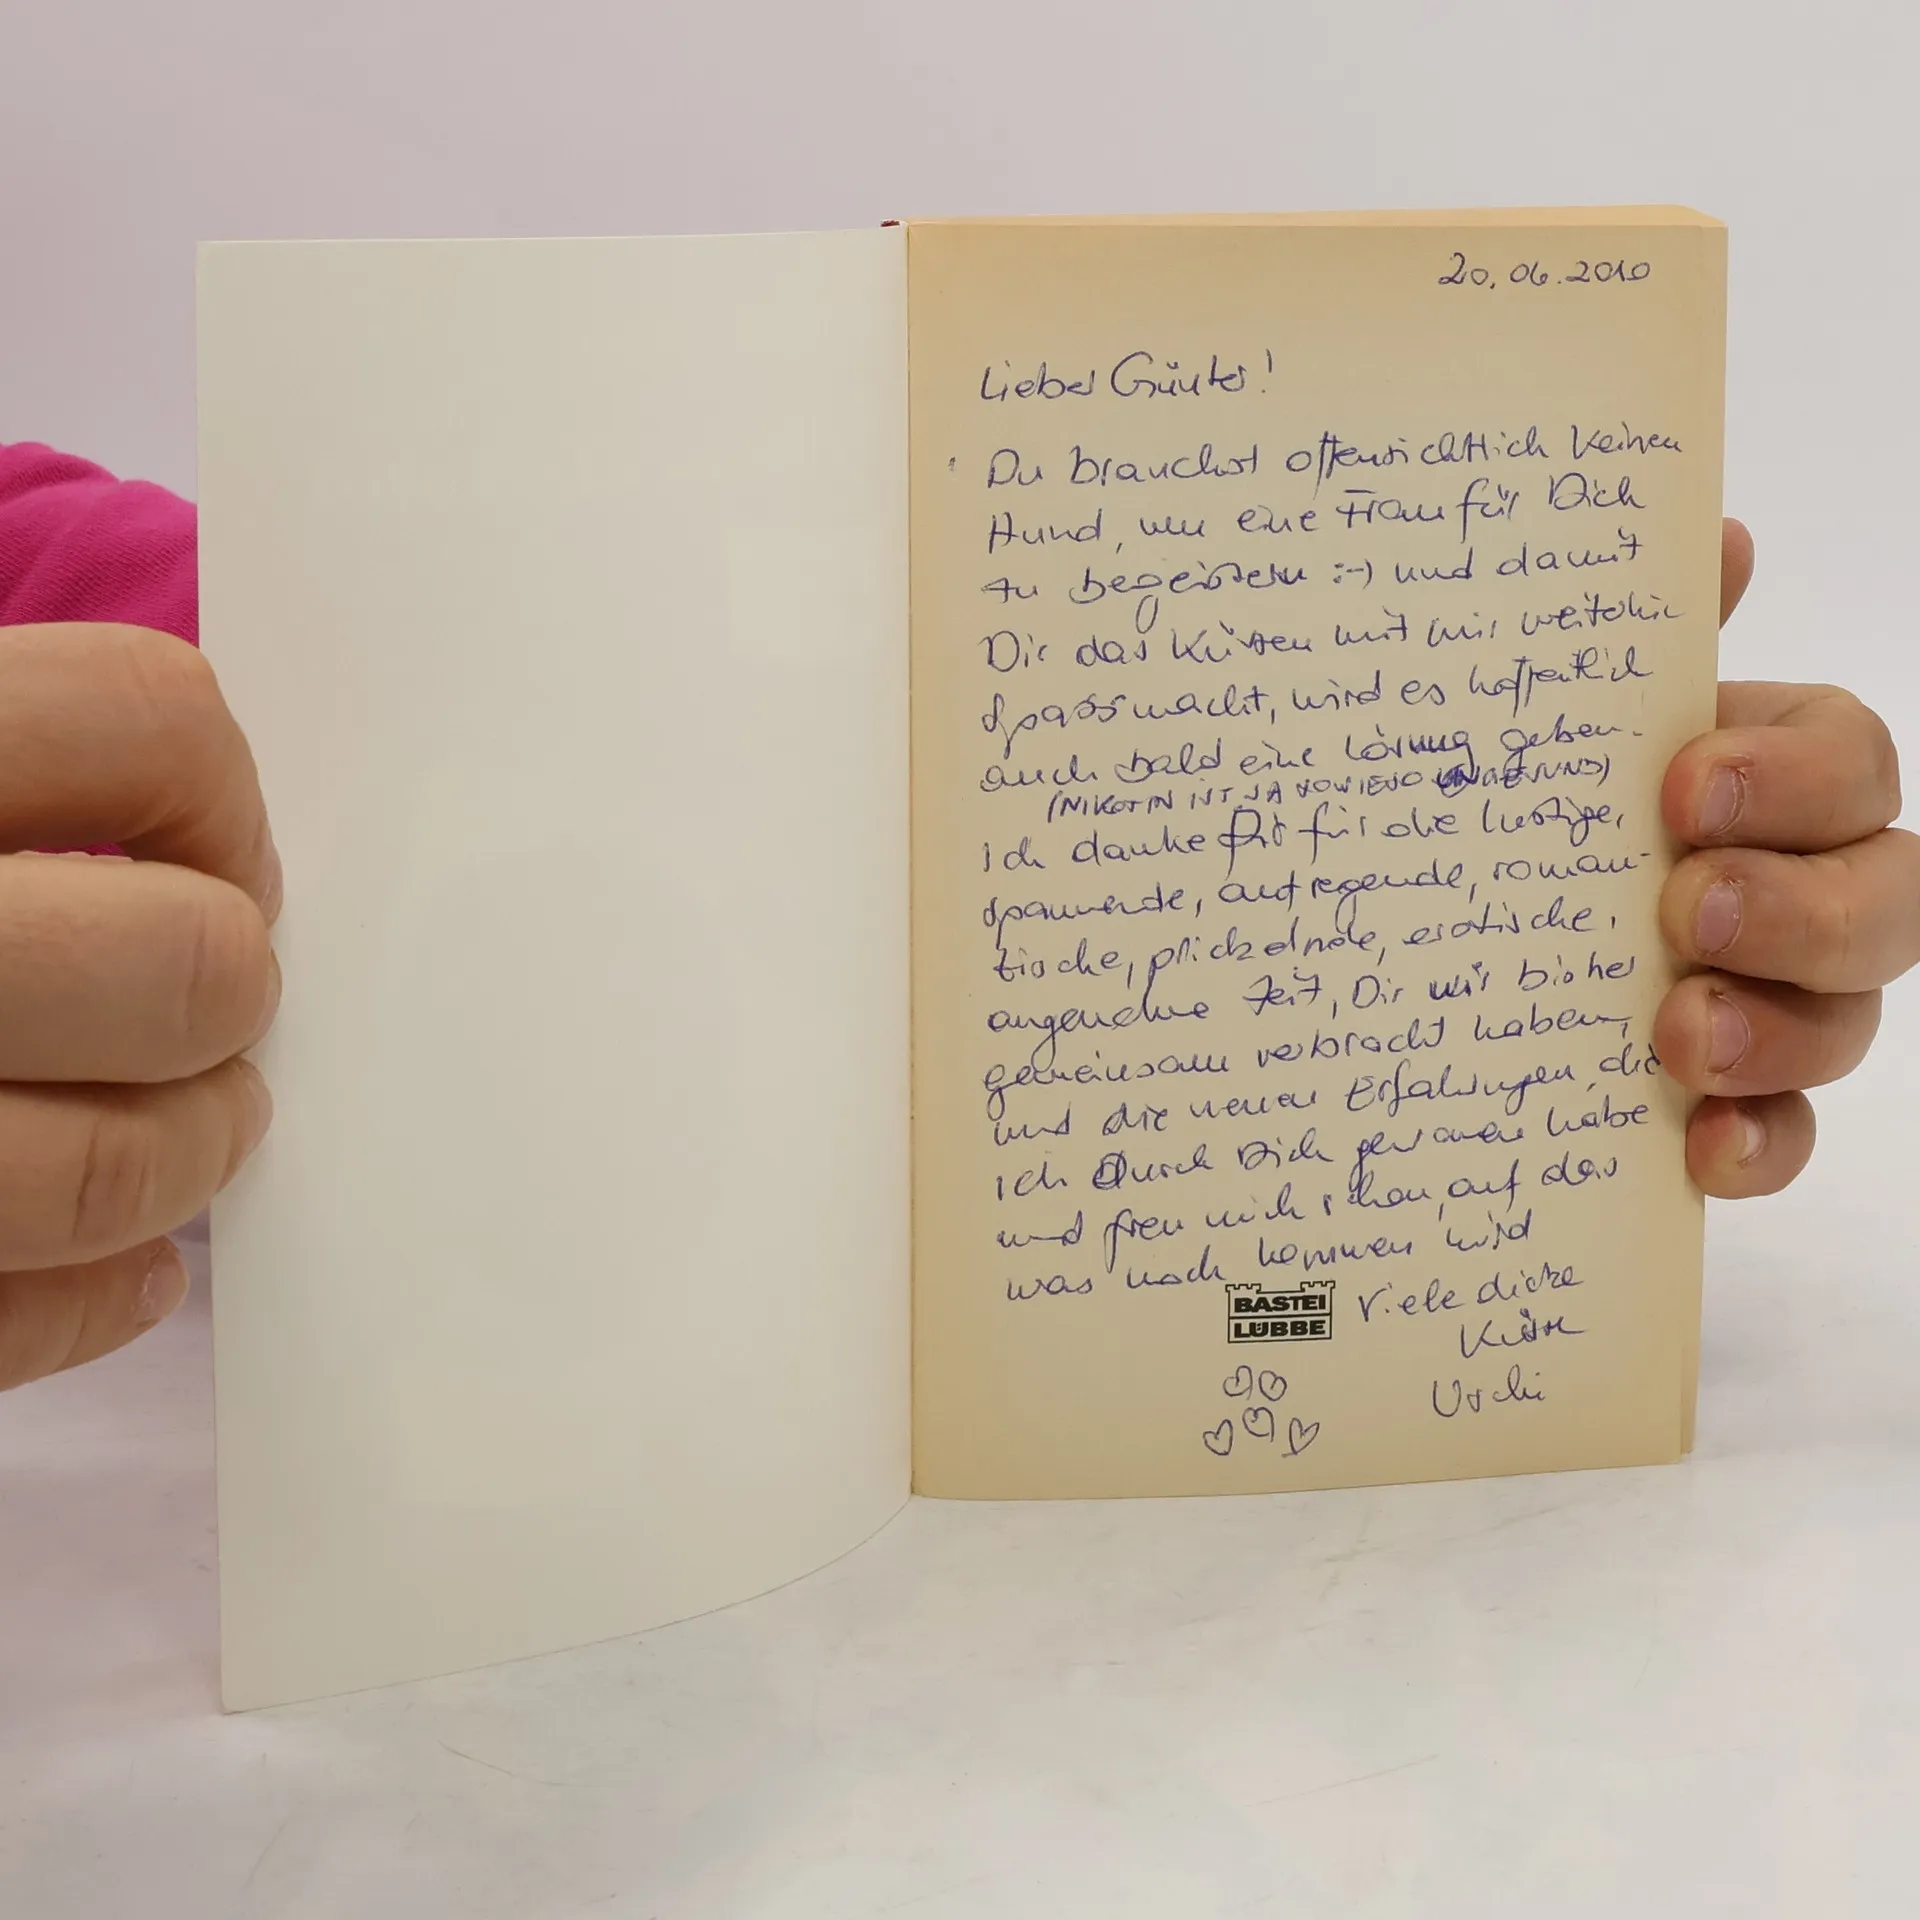 20.06.2010
Lieber Günter!
Du brauchst offensichtlich keinen
Hund, um eine Frau für Dich
zu begeistern :-) und damit
Dir das Küssen mit mir weiterhin
spass macht, wird es hoffentlich
auch bald eine Lösung geben.
(NIKOTIN IST JA SOWIESO UNGESUND)
Ich danke Dir für die lustige,
spannende, aufregende, roman-
tische, prickelnde, erotische,
angenehme Zeit, Die wir bisher
gemeinsam verbracht haben,
und die neuen Erfahrungen, die
ich Durch Dich gewonnen habe
und freu mich schon, auf das
was noch kommen wird
BASTEI
LÜBBE
Viele dicke
Küsse
Uschi